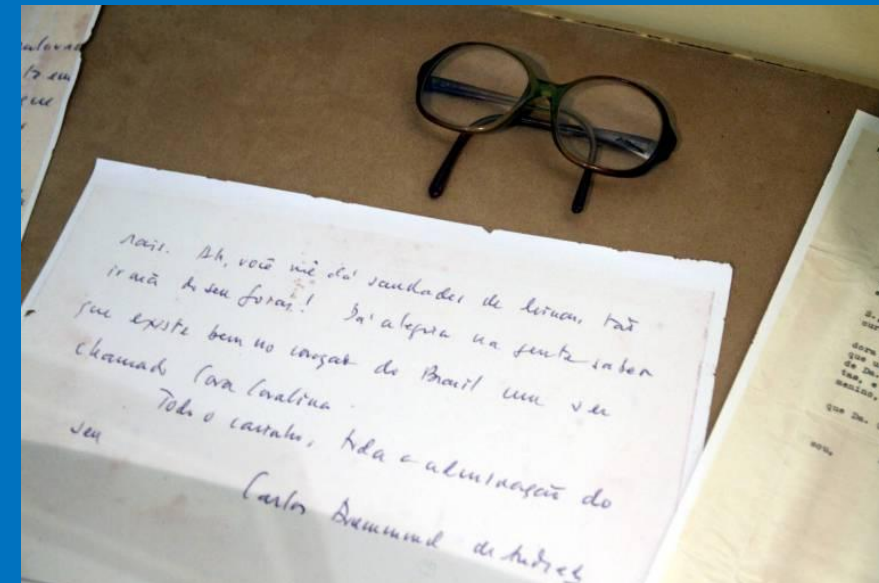 rais. Ah, você me dá saudades de Minas, tão
irmã do seu Goiás! Dá alegria na gente saber
que existe bem no coração do Brasil um ser
chamado Cora Coralina.
Todo o carinho, toda a admiração do
seu
Carlos Drummond de Andrade
que
dora
que u
de Da.
tas, e
menino,
que Da.